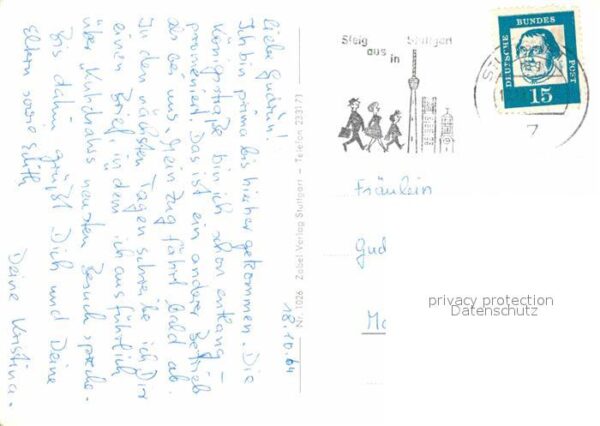 Liebe Gudrun!
Ich bin prima bis hierher gekommen. Die
Königstraße bin ich schon entlang-
promeniert. Das ist ein anderer Betrieb
als bei uns. Mein Zug fährt bald ab.
In den nächsten Tagen schreibe ich Dir
einen Brief, in dem ich ausführlich
über Kuhdrahs neusten Besuch spreche.
Bis dahin grüßt Dich und Deine
Eltern sowie Edith
Deine Kristina.
18.10.64
Nr. 1026 Zobel-Verlag Stuttgart – Telefon 233171
Steig aus in Stuttgart
DEUTSCHE BUNDESPOST
15
7
Fräulein
Gud
privacy protection
Datenschutz